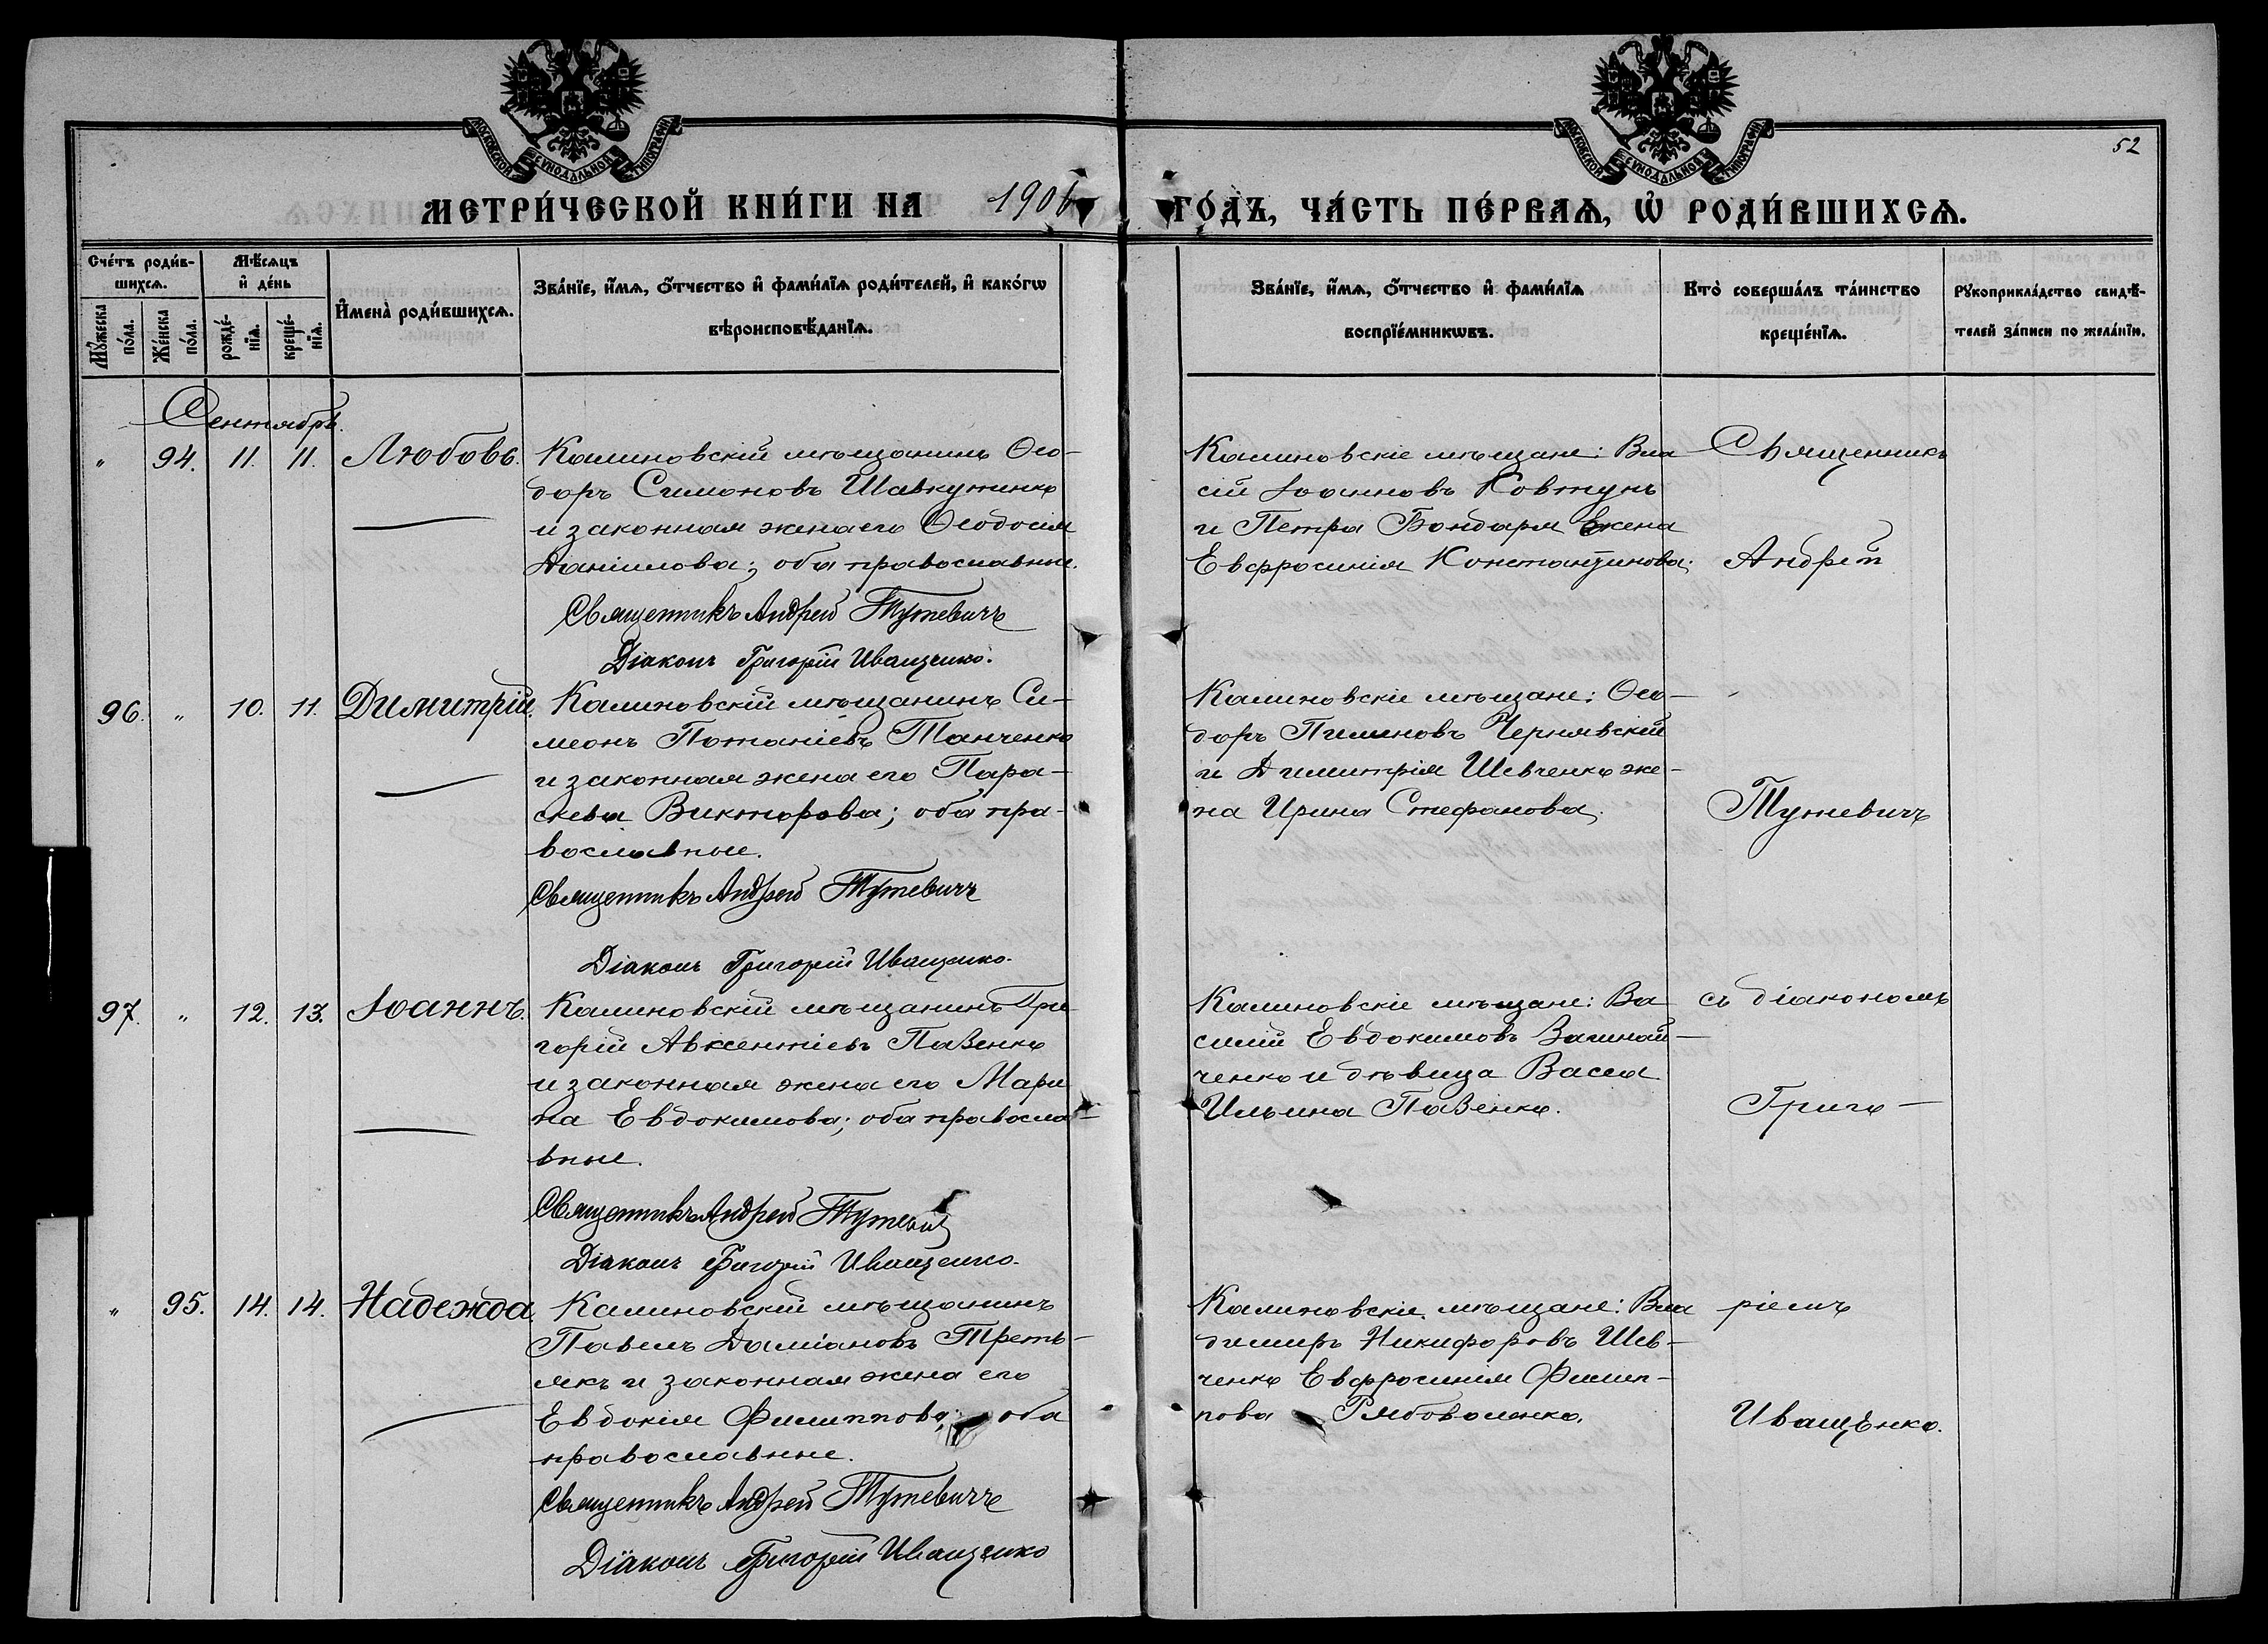 МОСКОВСКОЙ СѴНОДАЛЬНОЙ ТИПОГРАФІИ
МОСКОВСКОЙ СѴНОДАЛЬНОЙ ТИПОГРАФІИ
52
МЕТРИ́ЧЕСКОЙ КНИ́ГИ НА 1906 ГО́ДЪ, ЧА́СТЬ ПЕ́РВАѦ, Ѡ РОДИ́ВШИХСѦ.
Сче́тъ роди́в-
шихсѧ.
Мѣ́сѧцъ
и де́нь
Мꙋ́жеска
по́ла.
Же́нска
по́ла.
рожде́-
нїѧ.
креще́-
нїѧ.
И҆мена̀ роди́вшихсѧ.
Зва́нїе, и҆́мѧ, ѻ҆́тчество и҆ фами́лїѧ роди́телей, и҆ како́гѡ
вѣроисповѣ́данїѧ.
Зва́нїе, и҆́мѧ, ѻ҆́тчество и҆ фами́лїѧ
воспрїе́мникѡвъ.
Кто̀ соверша́лъ та́инство
креще́нїѧ.
Рꙋкоприкла́дство свидѣ́-
телей за́писи по жела́нїю.
Сентябрь.
" 94. 11. 11. Любовь.
Калиновскій мѣщанинъ Ѳео-
доръ Симоновъ Шавкуненко
и законная жена его Ѳеодосія
Даніилова; оба православные.
Священникъ Андрей Тутевичъ
Діаконъ Григорій Иващенко.
Калиновскіе мѣщане: Вла
сій Іоанновъ Ковтунъ
и Петра Бондаря жена
Евфросинія Константинова;
Священникъ
Андрей
96. " 10. 11. Димитрій.
Калиновскій мѣщанинъ Си-
меонъ Потапіевъ Танченко
и законная жена его Пара-
скева Викторова; оба пра-
вославные.
Священникъ Андрей Тутевичъ
Діаконъ Григорій Иващенко.
Калиновскіе мѣщане: Ѳео-
доръ Пименовъ Чернявскій
и Димитрія Шевченко же-
на Ирина Стефанова.
Тутевичъ
97. " 12. 13. Іоаннъ.
Калиновскій мѣщанинъ Гри
горій Авксентіевъ Пазенко
и законная жена его Мари
на Евдокимова; оба правосла-
вные.
Священникъ Андрей Тутевичъ
Діаконъ Григорій Иващенко.
Калиновскіе мѣщане: Ва
силій Евдокимовъ
ченко и дѣвица Васса
Ильина Пазенко.
съ діакономъ
Григо-
" 95. 14. 14. Надежда.
Калиновскій мѣщанинъ
Павелъ Даміановъ Треть-
якъ и законная жена его
Евдокія Филиппова; оба
православные.
Священникъ Андрей Тутевичъ
Діаконъ Григорій Иващенко
Калиновскіе мѣщане: Вла
димиръ Никифоровъ Шев-
ченко Евфросинія Филип-
пова Рябоволенко.
ріемъ
Иващенко.